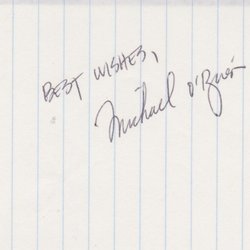 BEST WISHES,
Michael O'Brien